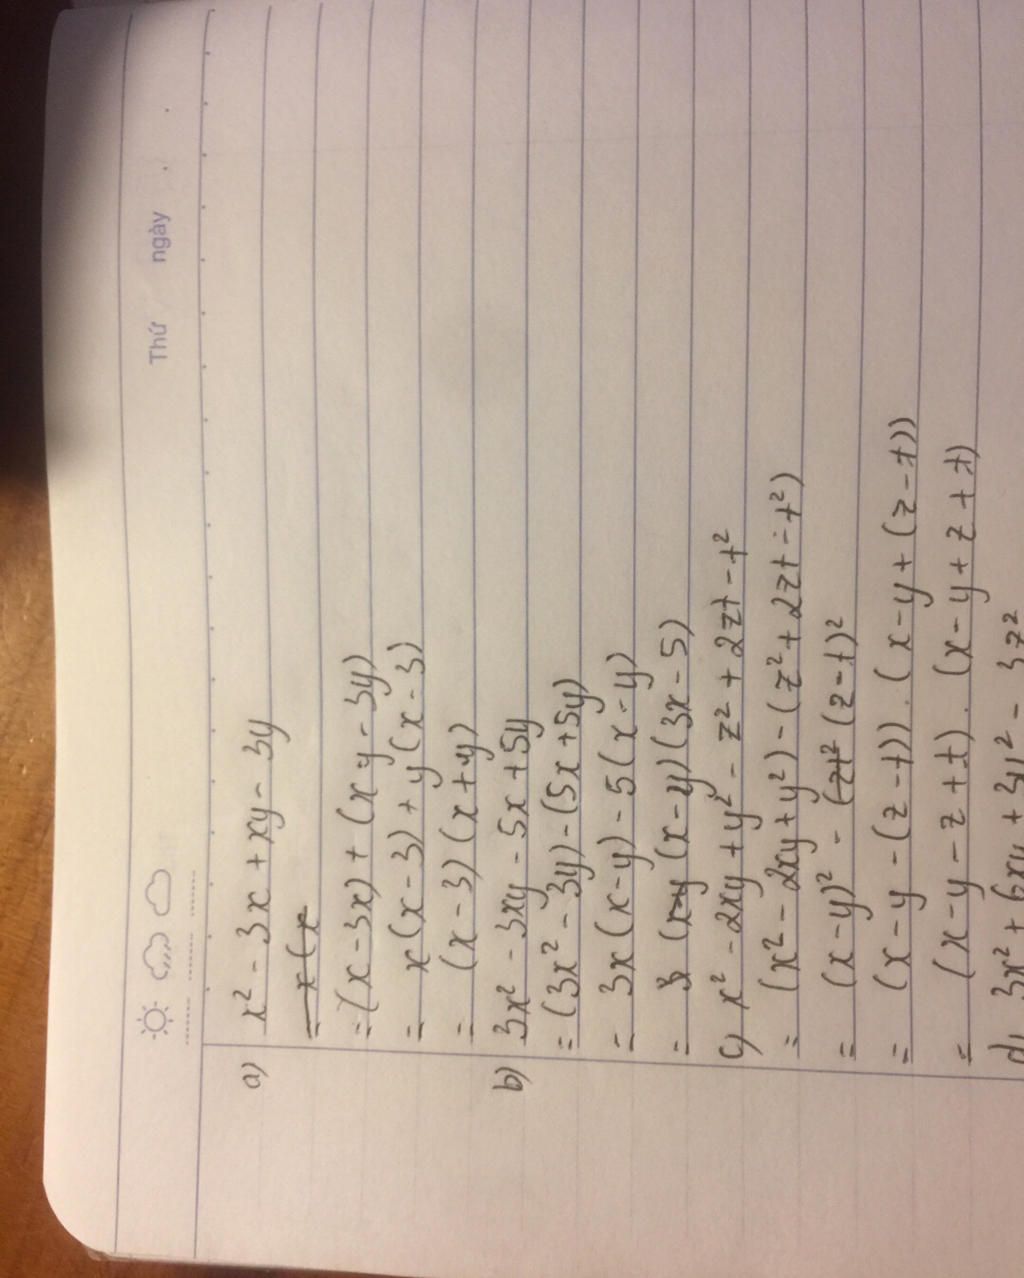 Thứ ngày
a) x² - 3x + xy - 3y
= x(x
= (x - 3x) + (xy - 3y)
= x(x - 3) + y(x - 3)
= (x - 3)(x + y)
b) 3x² - 3xy - 5x + 5y
= (3x² - 3y) - (5x + 5y)
= 3x(x - y) - 5(x - y)
= 3 (x-y (x - y)(3x - 5)
c) x² - 2xy + y² - z² + 2zt - t²
= (x² - 2xy + y²) - (z² + 2zt - t²)
= (x - y)² - (zt² (z - t)²
= (x - y - (z - t)) . (x - y + (z - t))
= (x - y - z + t) . (x - y + z + t)
d) 3x² + 6xy + 3y² - 3z²